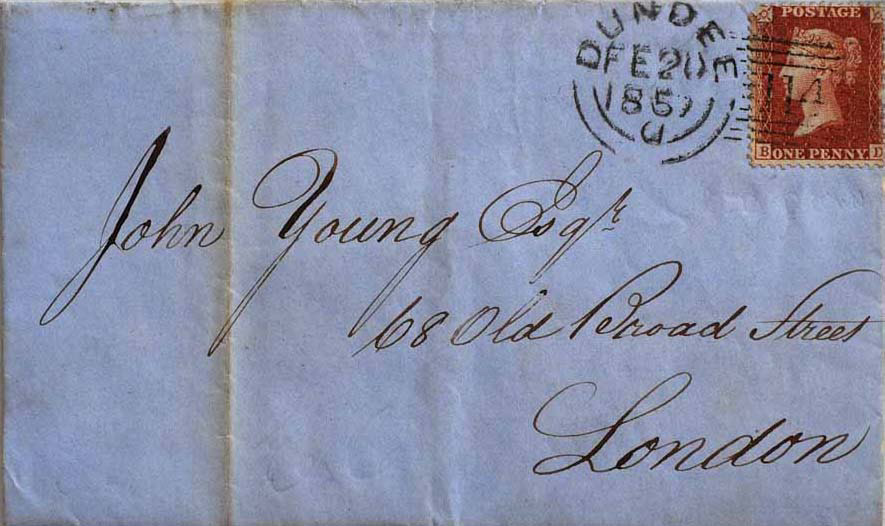 DUNDEE
FE 20
1857
D
114
POSTAGE
B ONE PENNY D
John Young Esqr
68 Old Broad Street
London